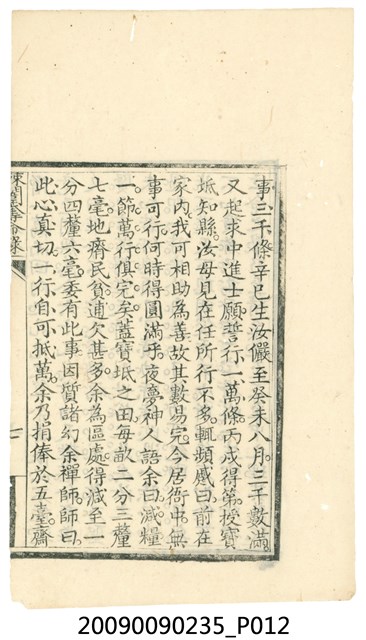 事三千條辛巳生汝儼至癸未八月三千數滿
又起求中進士願誓行一萬條丙戌得第授寶
坻知縣汝母見在任所行不多輒頻慼曰前在
家內我可相助為善故其數易完今居衙中無
事可行何時得圓滿乎夜夢神人語余曰減糧
一節萬行俱完矣蓋寶坻之田每畝二分三釐
七毫地瘠民貧逋欠甚多余為區處得減至一
分四釐六毫委有此事因質諸幻余禪師師曰
此心真切一行自可抵萬余乃捐俸於五臺齋
20090090235_P012